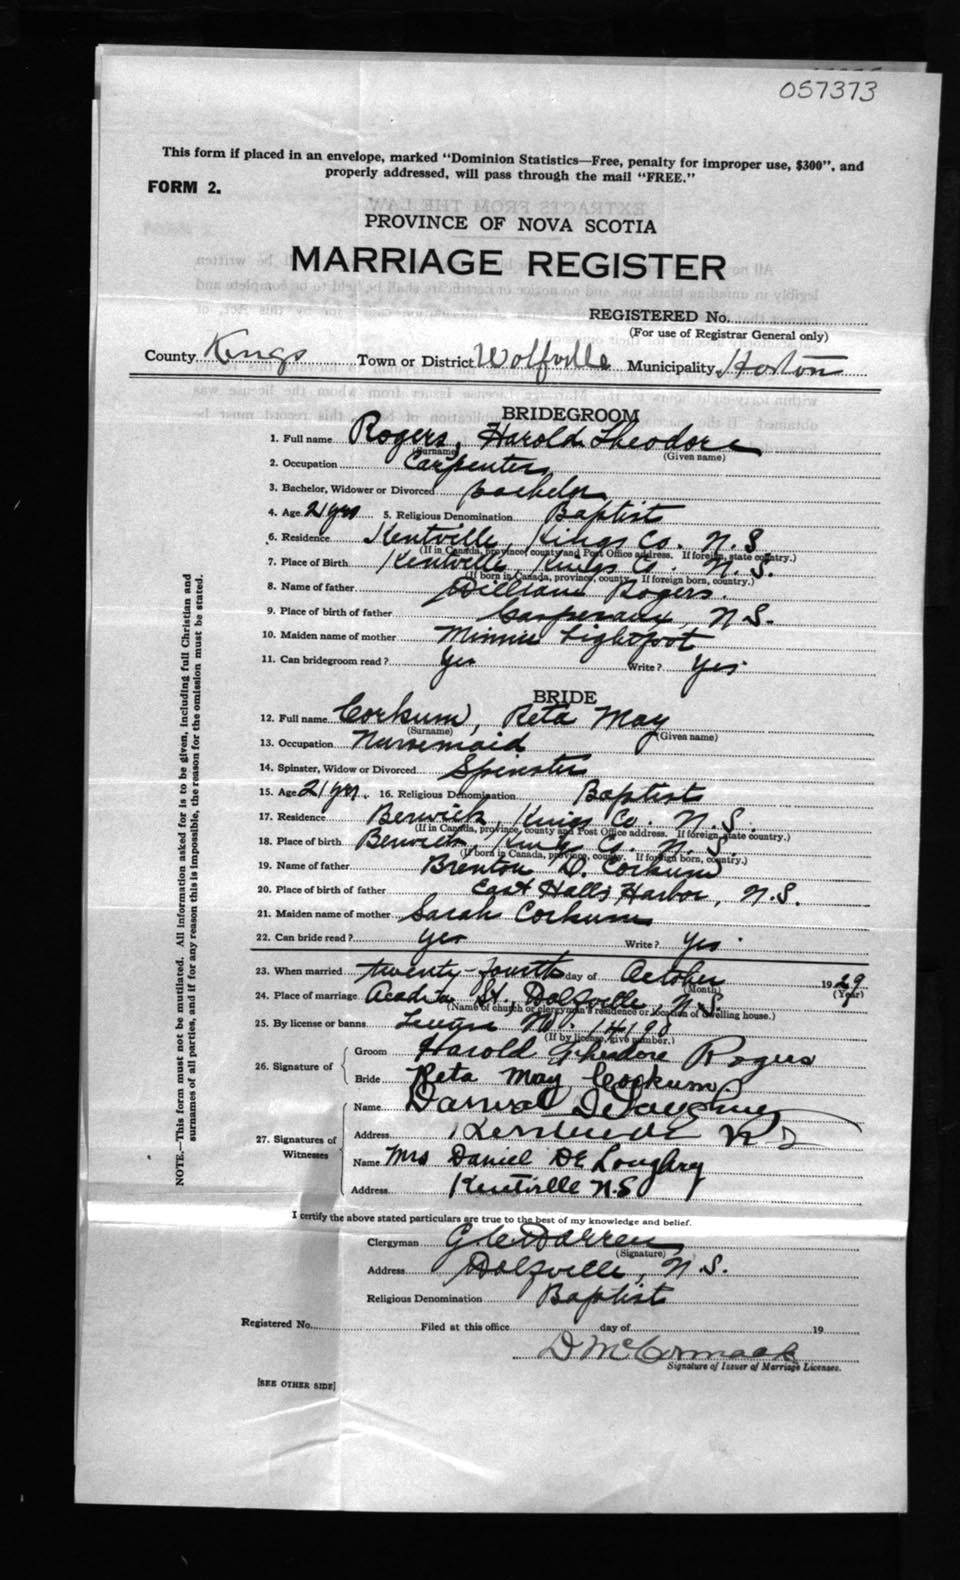 057373
This form if placed in an envelope, marked "Dominion Statistics—Free, penalty for improper use, $300", and
properly addressed, will pass through the mail "FREE."
FORM 2.
PROVINCE OF NOVA SCOTIA
MARRIAGE REGISTER
REGISTERED No.
(For use of Registrar General only)
County Kings Town or District Wolfville Municipality Horton
BRIDEGROOM
1. Full name Rogers, Harold Theodore
(Surname) (Given name)
2. Occupation Carpenter
3. Bachelor, Widower or Divorced Bachelor
4. Age 21 yrs 5. Religious Denomination Baptist
6. Residence Kentville, Kings Co. N.S.
(If in Canada, province, county and Post Office address. If foreign, state country.)
7. Place of Birth Kentville, Kings Co. N.S.
(If born in Canada, province, county. If foreign born, country.)
8. Name of father William Rogers.
9. Place of birth of father N.S.
10. Maiden name of mother Minnie Lightfoot
11. Can bridegroom read? Yes Write? Yes.
BRIDE
12. Full name Corkum, Reta May
(Surname) (Given name)
13. Occupation Nursemaid
14. Spinster, Widow or Divorced Spinster
15. Age 21 yrs. 16. Religious Denomination Baptist
17. Residence Berwick, Kings Co. N.S.
(If in Canada, province, county and Post Office address. If foreign, state country.)
18. Place of birth Berwick, Kings Co. N.S.
(If born in Canada, province, county. If foreign born, country.)
19. Name of father Brenton D. Corkum
20. Place of birth of father East Halls Harbor, N.S.
21. Maiden name of mother Sarah Corkum
22. Can bride read? Yes Write? Yes.
23. When married twenty-fourth day of October 1929
(Month) (Year)
24. Place of marriage Acadia St., Wolfville, N.S.
(Name of church or clergyman's residence or location of dwelling house.)
25. By license or banns License No. 14198
(If by license, give number.)
26. Signature of
Groom Harold Theodore Rogers
Bride Reta May Corkum.
27. Signatures of
Witnesses
Name Daniel DeLoughrey
Address Kentville N S
Name Mrs Daniel DeLoughry
Address Kentville N.S
I certify the above stated particulars are true to the best of my knowledge and belief.
Clergyman G. C. Warren
(Signature)
Address Wolfville, N.S.
Religious Denomination Baptist
Registered No. Filed at this office day of 19
D McCormack
Signature of Issuer of Marriage Licenses.
[SEE OTHER SIDE]
NOTE.—This form must not be mutilated. All information asked for is to be given, including full Christian and
surnames of all parties, and if for any reason this is impossible, the reason for the omission must be stated.